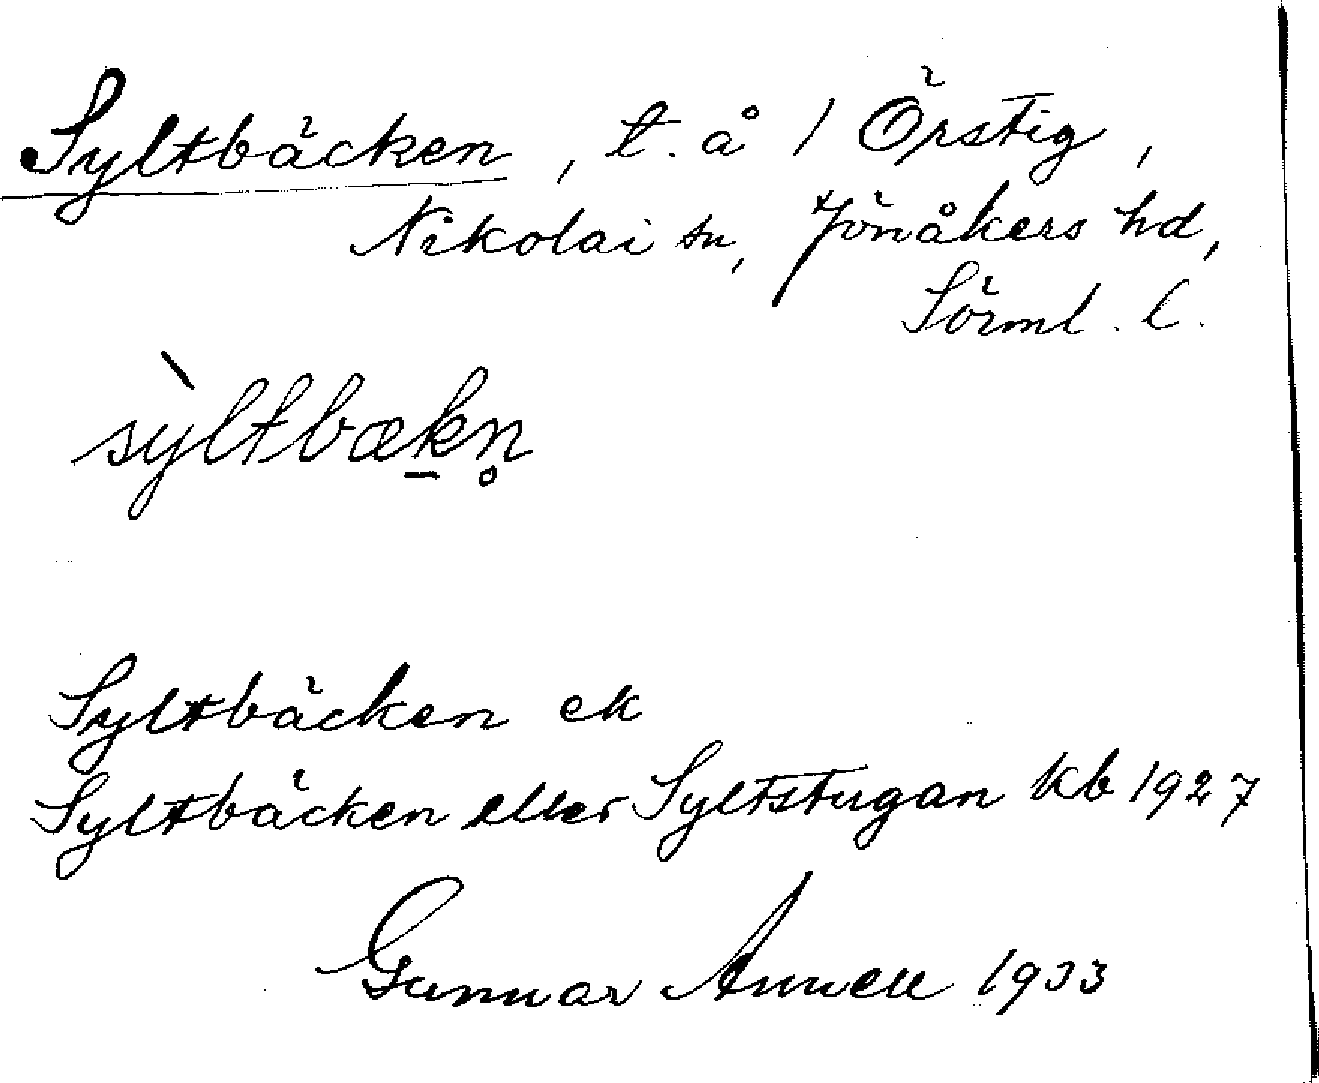 Syltbäcken, t. å 1 Örstig,
Nikolai sn, Jönåkers hd,
Sörml. l.
sỳltbæk̠n̥
Syltbäcken ek
Syltbäcken eller Syltstugan kb 1927
Gunnar Annell 1933